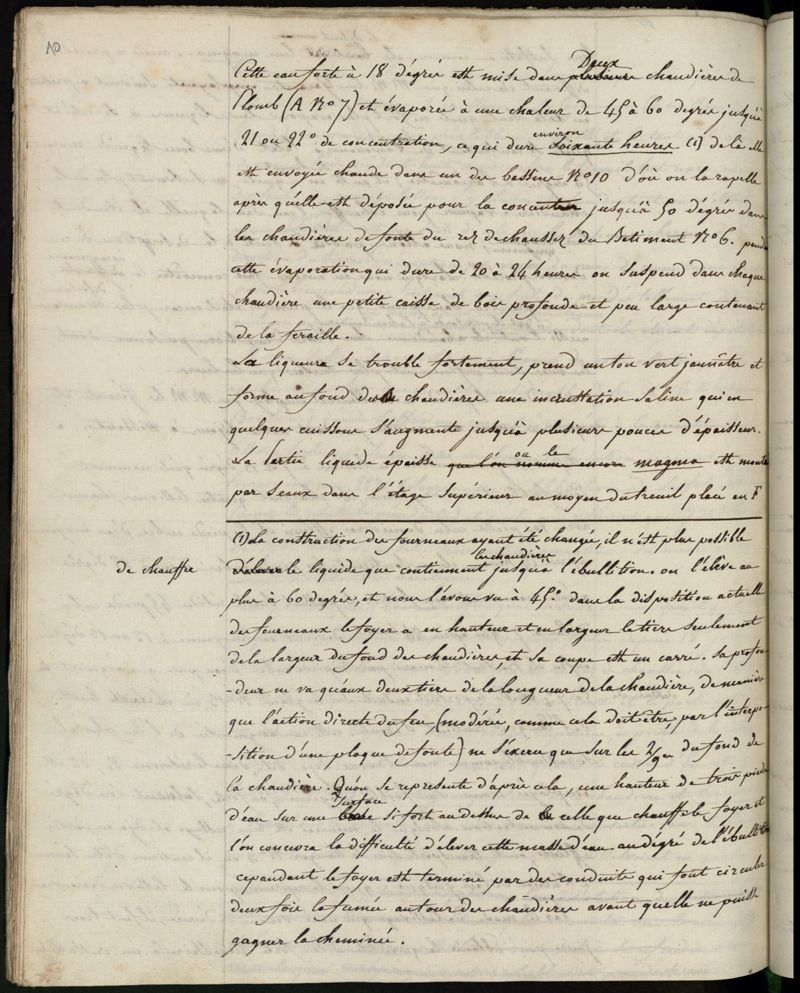 10
Cette eau forte à 18 dégrés est mise dans plusieurs Deux chaudières de
Plomb (A No 7) et évaporée à une chaleur de 45 à 60 degrés jusqu'à
21 ou 22° de concentration, ce qui dure environ soixante heures (1) de là elle
est envoyée chaude dans un des bassins No 10 d'où on la rapelle
après quélle est déposée pour la concentrer jusqu'à 50 dégrés dans
les chaudières de fonte du rez de chaussez du Batiment No 6. pend
cette évaporation qui dure de 20 à 24 heures on suspend dans chaque
chaudière une petite caisse de bois profonde et peu large contenant
de la feraille.
La liqueure se trouble fortement, prend un ton vert jaunâtre et
forme au fond des chaudières une incrustation saline qui en
quelques cuissons s'augmente jusqu'à plusieurs pouces d'épaisseur.
La Partie liquide épaisse que l'on nomme encore ou le magma est monté
par seaux dans l'étage supérieur au moyen du treuil placé en F
(1) La construction des fourneaux ayant été changée, il n'est plus possible
de chauffer
d'élever le liquide que contiennent les chaudières jusqu'à l'ébullition. on l'élève au
plus à 60 degrés, et nous l'avons vu à 45.° dans la disposition actuelle
des fourneaux le foyer a en hauteur et en largeur le tiers seulement
de la largeur du fond des chaudières, et sa coupe est un carré. sa profon-
-deur ne va qu'aux deux tiers de la longueur de la chaudière, de manière
que l'action directe du feu, (modérée, comme cela doit être, par l'interpo-
-sition d'une plaque de fonte) ne s'éxerce que sur les 2/9es du fond de
la chaudière. Qu'on se represente d'après cela, une hauteur de trois pieds
d'eau sur une surface si fort au dessus de celle que chauffe le foyer et
l'on concevra la difficulté d'élever cette masse d'eau au dégré de l'ébullition
cepandant le foyer est terminé par des conduits qui font circuler
deux fois la fumée autour des chaudières avant quelle ne puisse
gagner la cheminée.